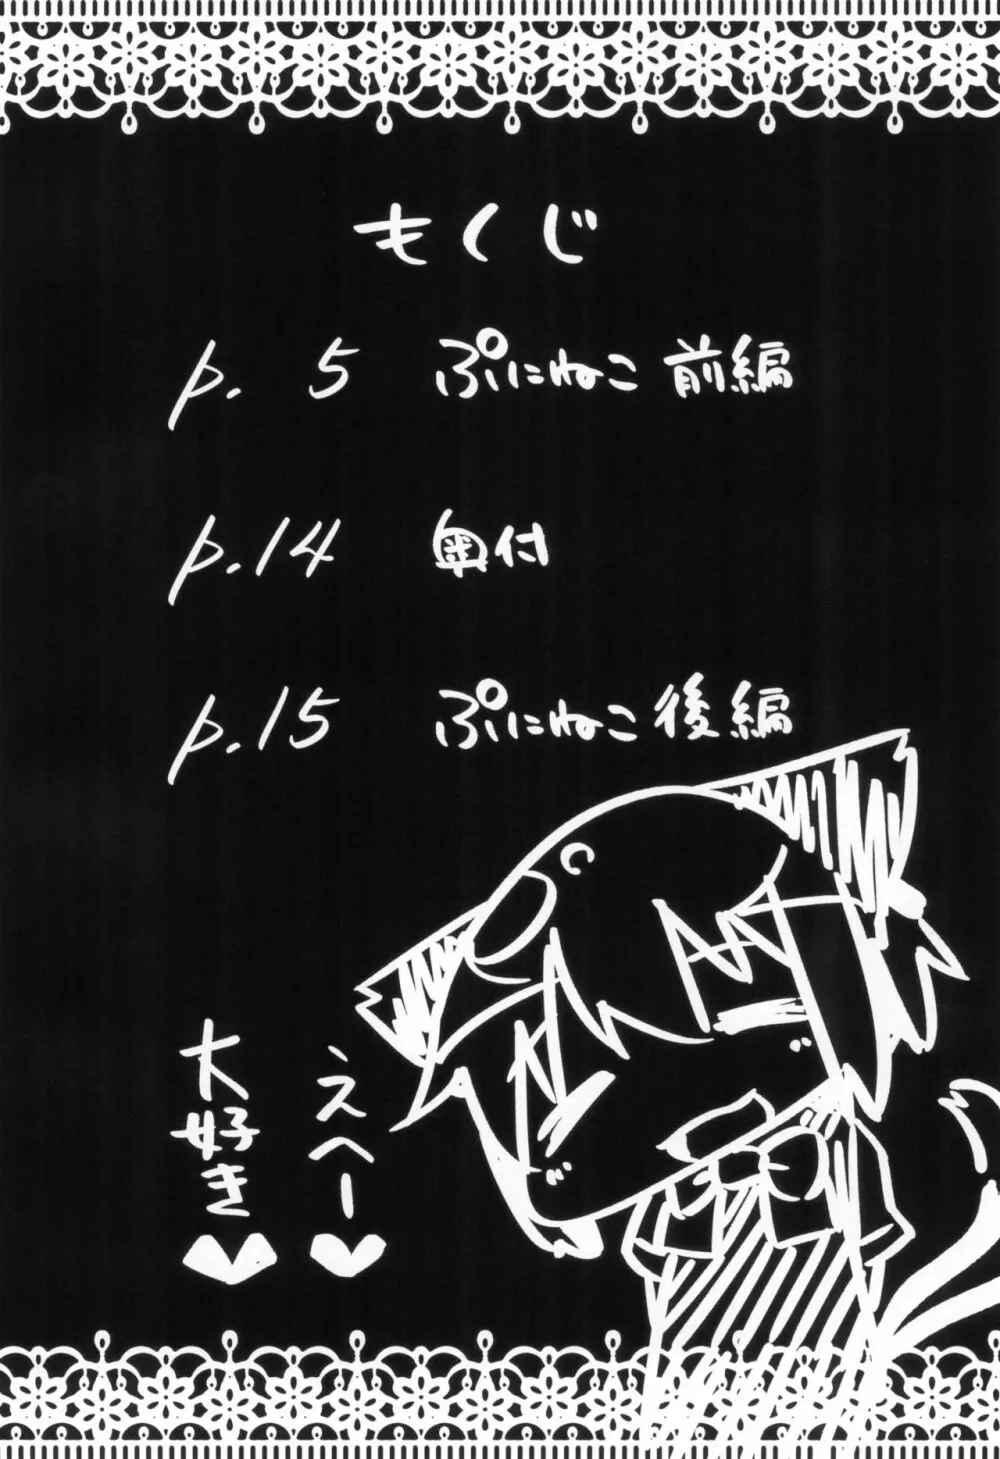 もくじ
p. 5 ぷにねこ 前編
p.14 奥付
p.15 ぷにねこ 後編
えへー
大好き